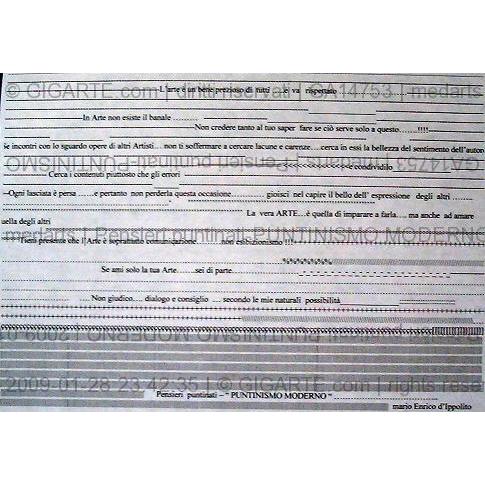 © GIGARTE.com | diritti riservati | GA14753 | medarts
L'arte è un bene prezioso di tutti ....e va rispettato
In Arte non esiste il banale
Non credere tanto al tuo saper fare se ciò serve solo a questo........!!!!
Se incontri con lo sguardo opere di altri Artisti.... non ti soffermare a cercare lacune e carenze.... cerca in essi la bellezza del sentimento dell'autore
e condividilo
GA14753 | medarts | Pensieri puntinati-PUNTINISMO
Cerca i contenuti piuttosto che gli errori
Ogni lasciata è persa ......e pertanto non perderla questa occasione............... gioisci nel capire il bello dell' espressione degli altri ........
La vera ARTE...è quella di imparare a farla.... ma anche ad amare
quella degli altri
medarts | Pensieri puntinati-PUNTINISMO MODERNO
Tieni presente che l'Arte è soprattutto comunicazione ........non esibizionismo !!!
%%%%%%%%
Se ami solo la tua Arte.......sei di parte
Non giudico.... dialogo e consiglio .... secondo le mie naturali possibilità
2009-01-28 23:42:35 | © GIGARTE.com | rights rese
Pensieri puntinati – " PUNTINISMO MODERNO "
mario Enrico d'Ippolito